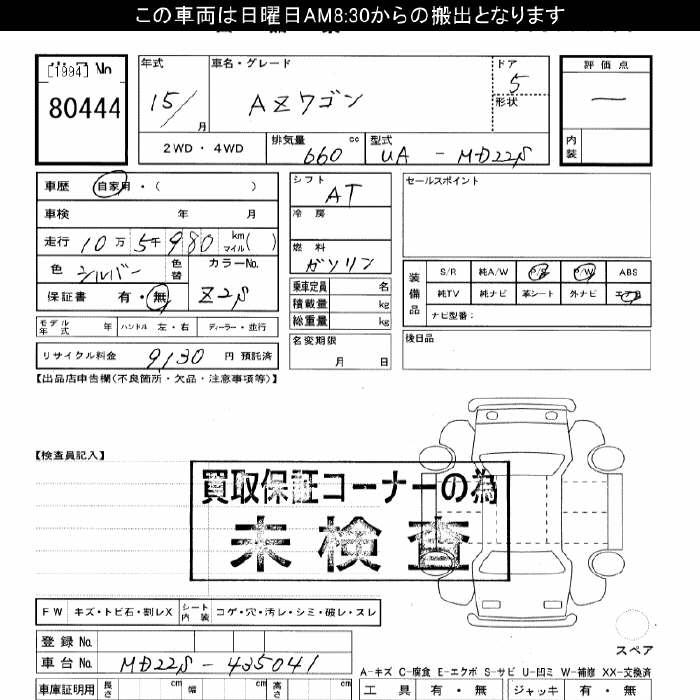 この車両は日曜日AM8:30からの搬出となります
[1994] No
80444
年式 15/ 月
車名・グレード AZワゴン
ドア 5
形状
評価点 —
内装
2WD・4WD
排気量 660 cc
型式 UA - MD22S
車歴 自家用・( )
車検 年 月
走行 10万5千980 km マイル( )
色 シルバー 色替
カラーNo. Z2S
保証書 有・無
モデル年式 年 ハンドル 左・右 ディーラー・並行
リサイクル料金 9130 円 預託済
シフト AT
冷房
燃料 ガソリン
乗車定員 名
積載量 kg
総重量 kg
名変期限 月 日
セールスポイント
装備品 S/R 純A/W P/S P/W ABS
純TV 純ナビ 革シート 外ナビ エアB
ナビ型番:
後日品
【出品店申告欄(不良箇所・欠品・注意事項等)】
【検査員記入】
買取保証コーナーの為
未検査
FW キズ・トビ石・割レX シート内装 コゲ・穴・汚レ・シミ・破レ・スレ
スペア
登録No.
車台No. MD22S-435041
A-キズ C-腐食 E-エクボ S-サビ U-凹ミ W-補修 XX-交換済
車庫証明用 長さ cm 幅 cm 高さ cm
工具 有・無 ジャッキ 有・無